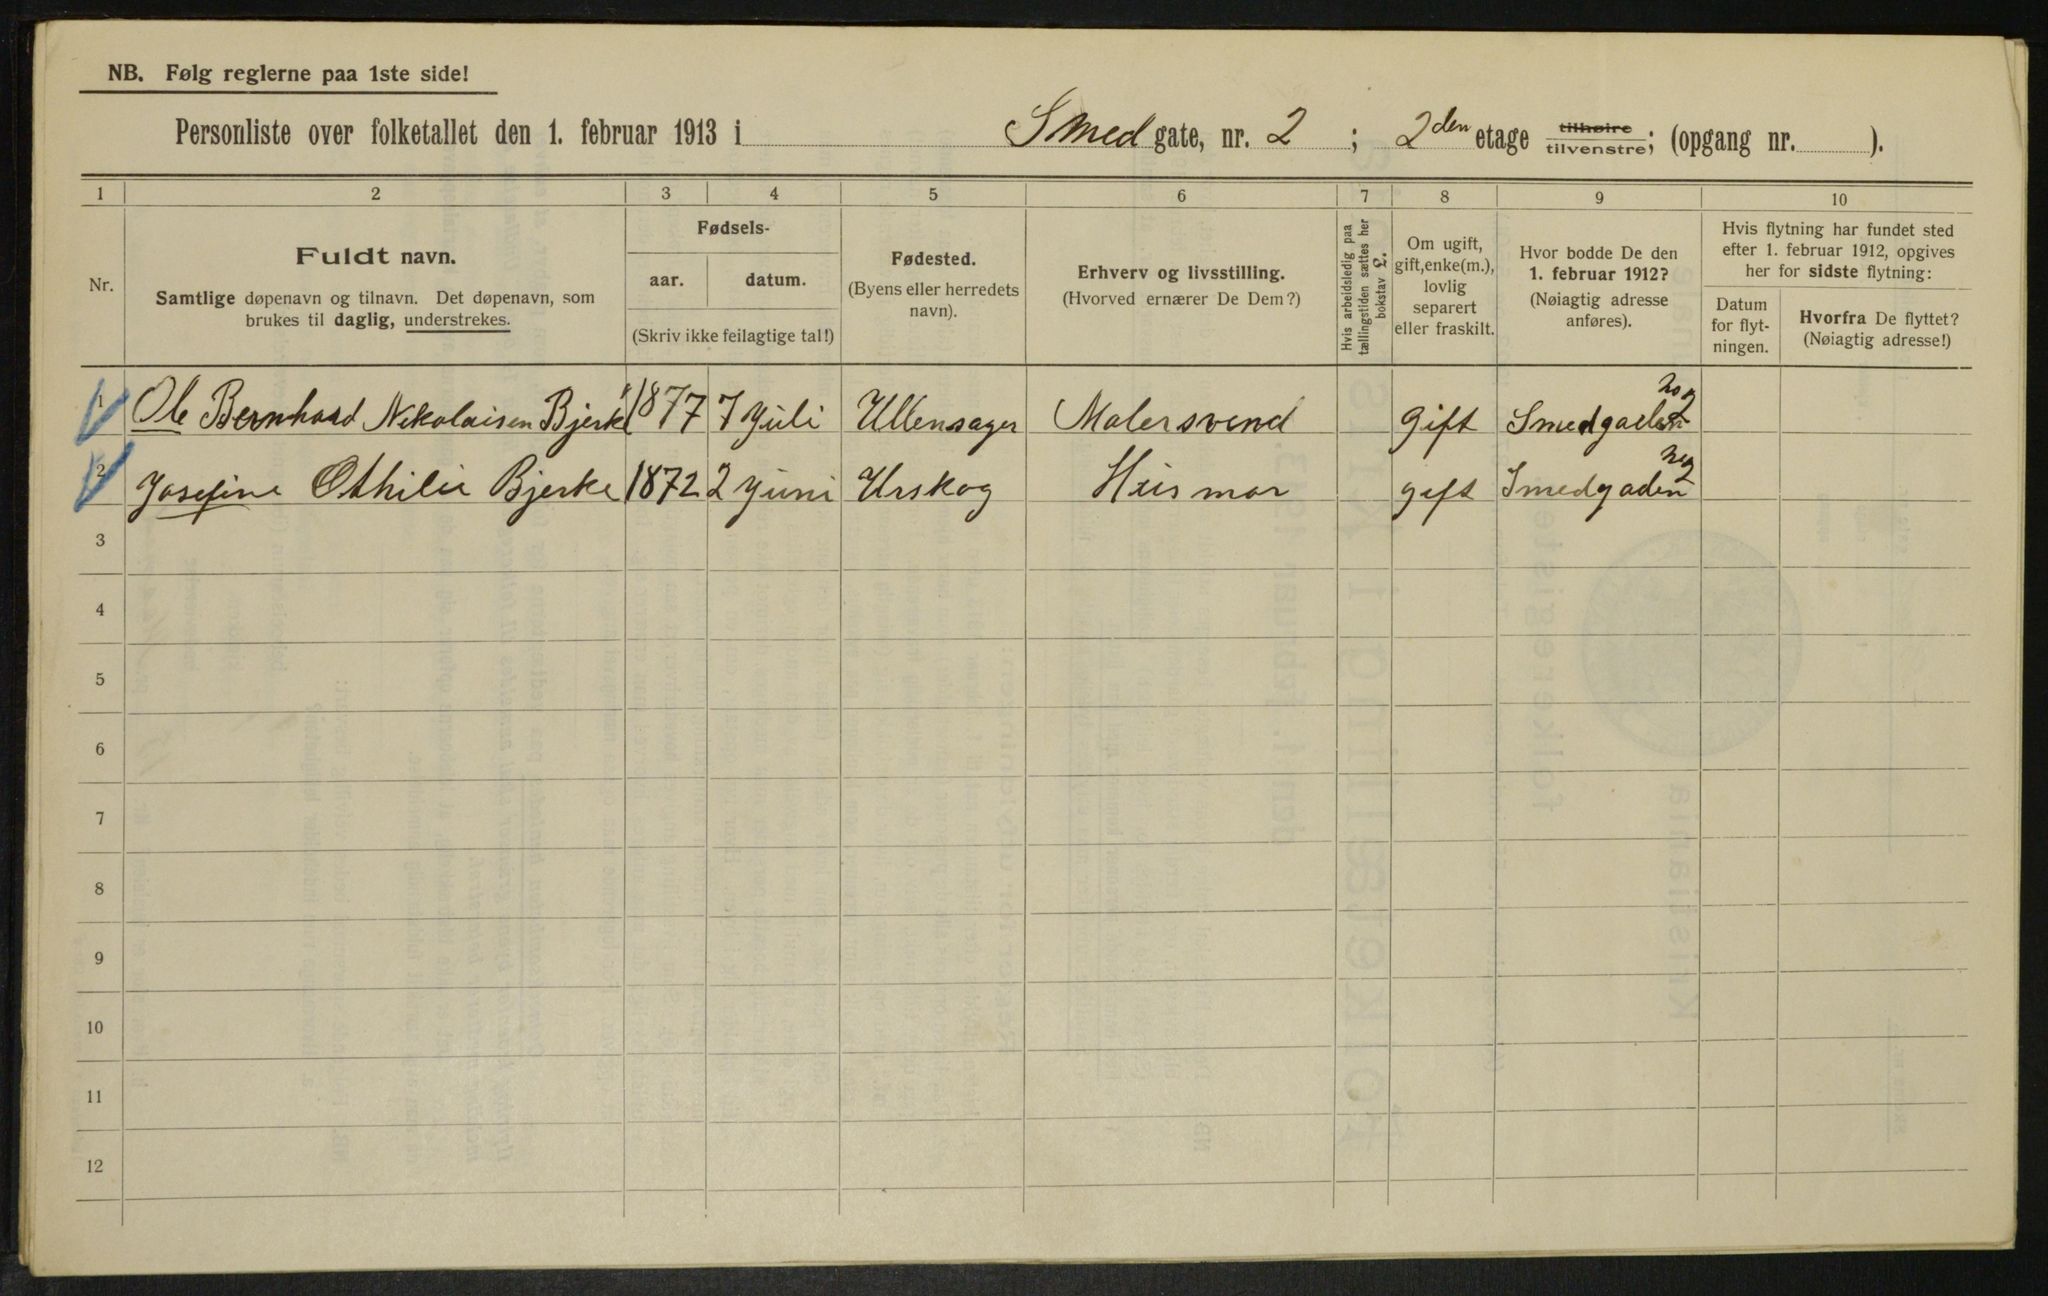 NB. Følg reglerne paa 1ste side!
Personliste over folketallet den 1. februar 1913 i Smed gate, nr. 2 ; 2den etage tilhøire tilvenstre; (opgang nr. ).
1 2 3 4 5 6 7 8 9 10
Nr.
Fuldt navn.
Samtlige døpenavn og tilnavn. Det døpenavn, som
brukes til daglig, understrekes.
Fødsels-
aar. datum.
(Skriv ikke feilagtige tal!)
Fødested.
(Byens eller herredets
navn).
Erhverv og livsstilling.
(Hvorved ernærer De Dem?)
Hvis arbeidsledig paa
tællingstiden sættes her
bokstav L.
Om ugift,
gift, enke(m.),
lovlig
separert
eller fraskilt.
Hvor bodde De den
1. februar 1912?
(Nøiagtig adresse
anføres).
Hvis flytning har fundet sted
efter 1. februar 1912, opgives
her for sidste flytning:
Datum
for flyt-
ningen.
Hvorfra De flyttet?
(Nøiagtig adresse!)
1 Ole Bernhard Nikolaisen Bjerke 1877 7 Juli Ullensager Malersvend Gift Smedgaden no 2
2 Josefine Othilie Bjerke 1872 2 Juni Urskog Husmor gift Smedgaden no 2
3
4
5
6
7
8
9
10
11
12